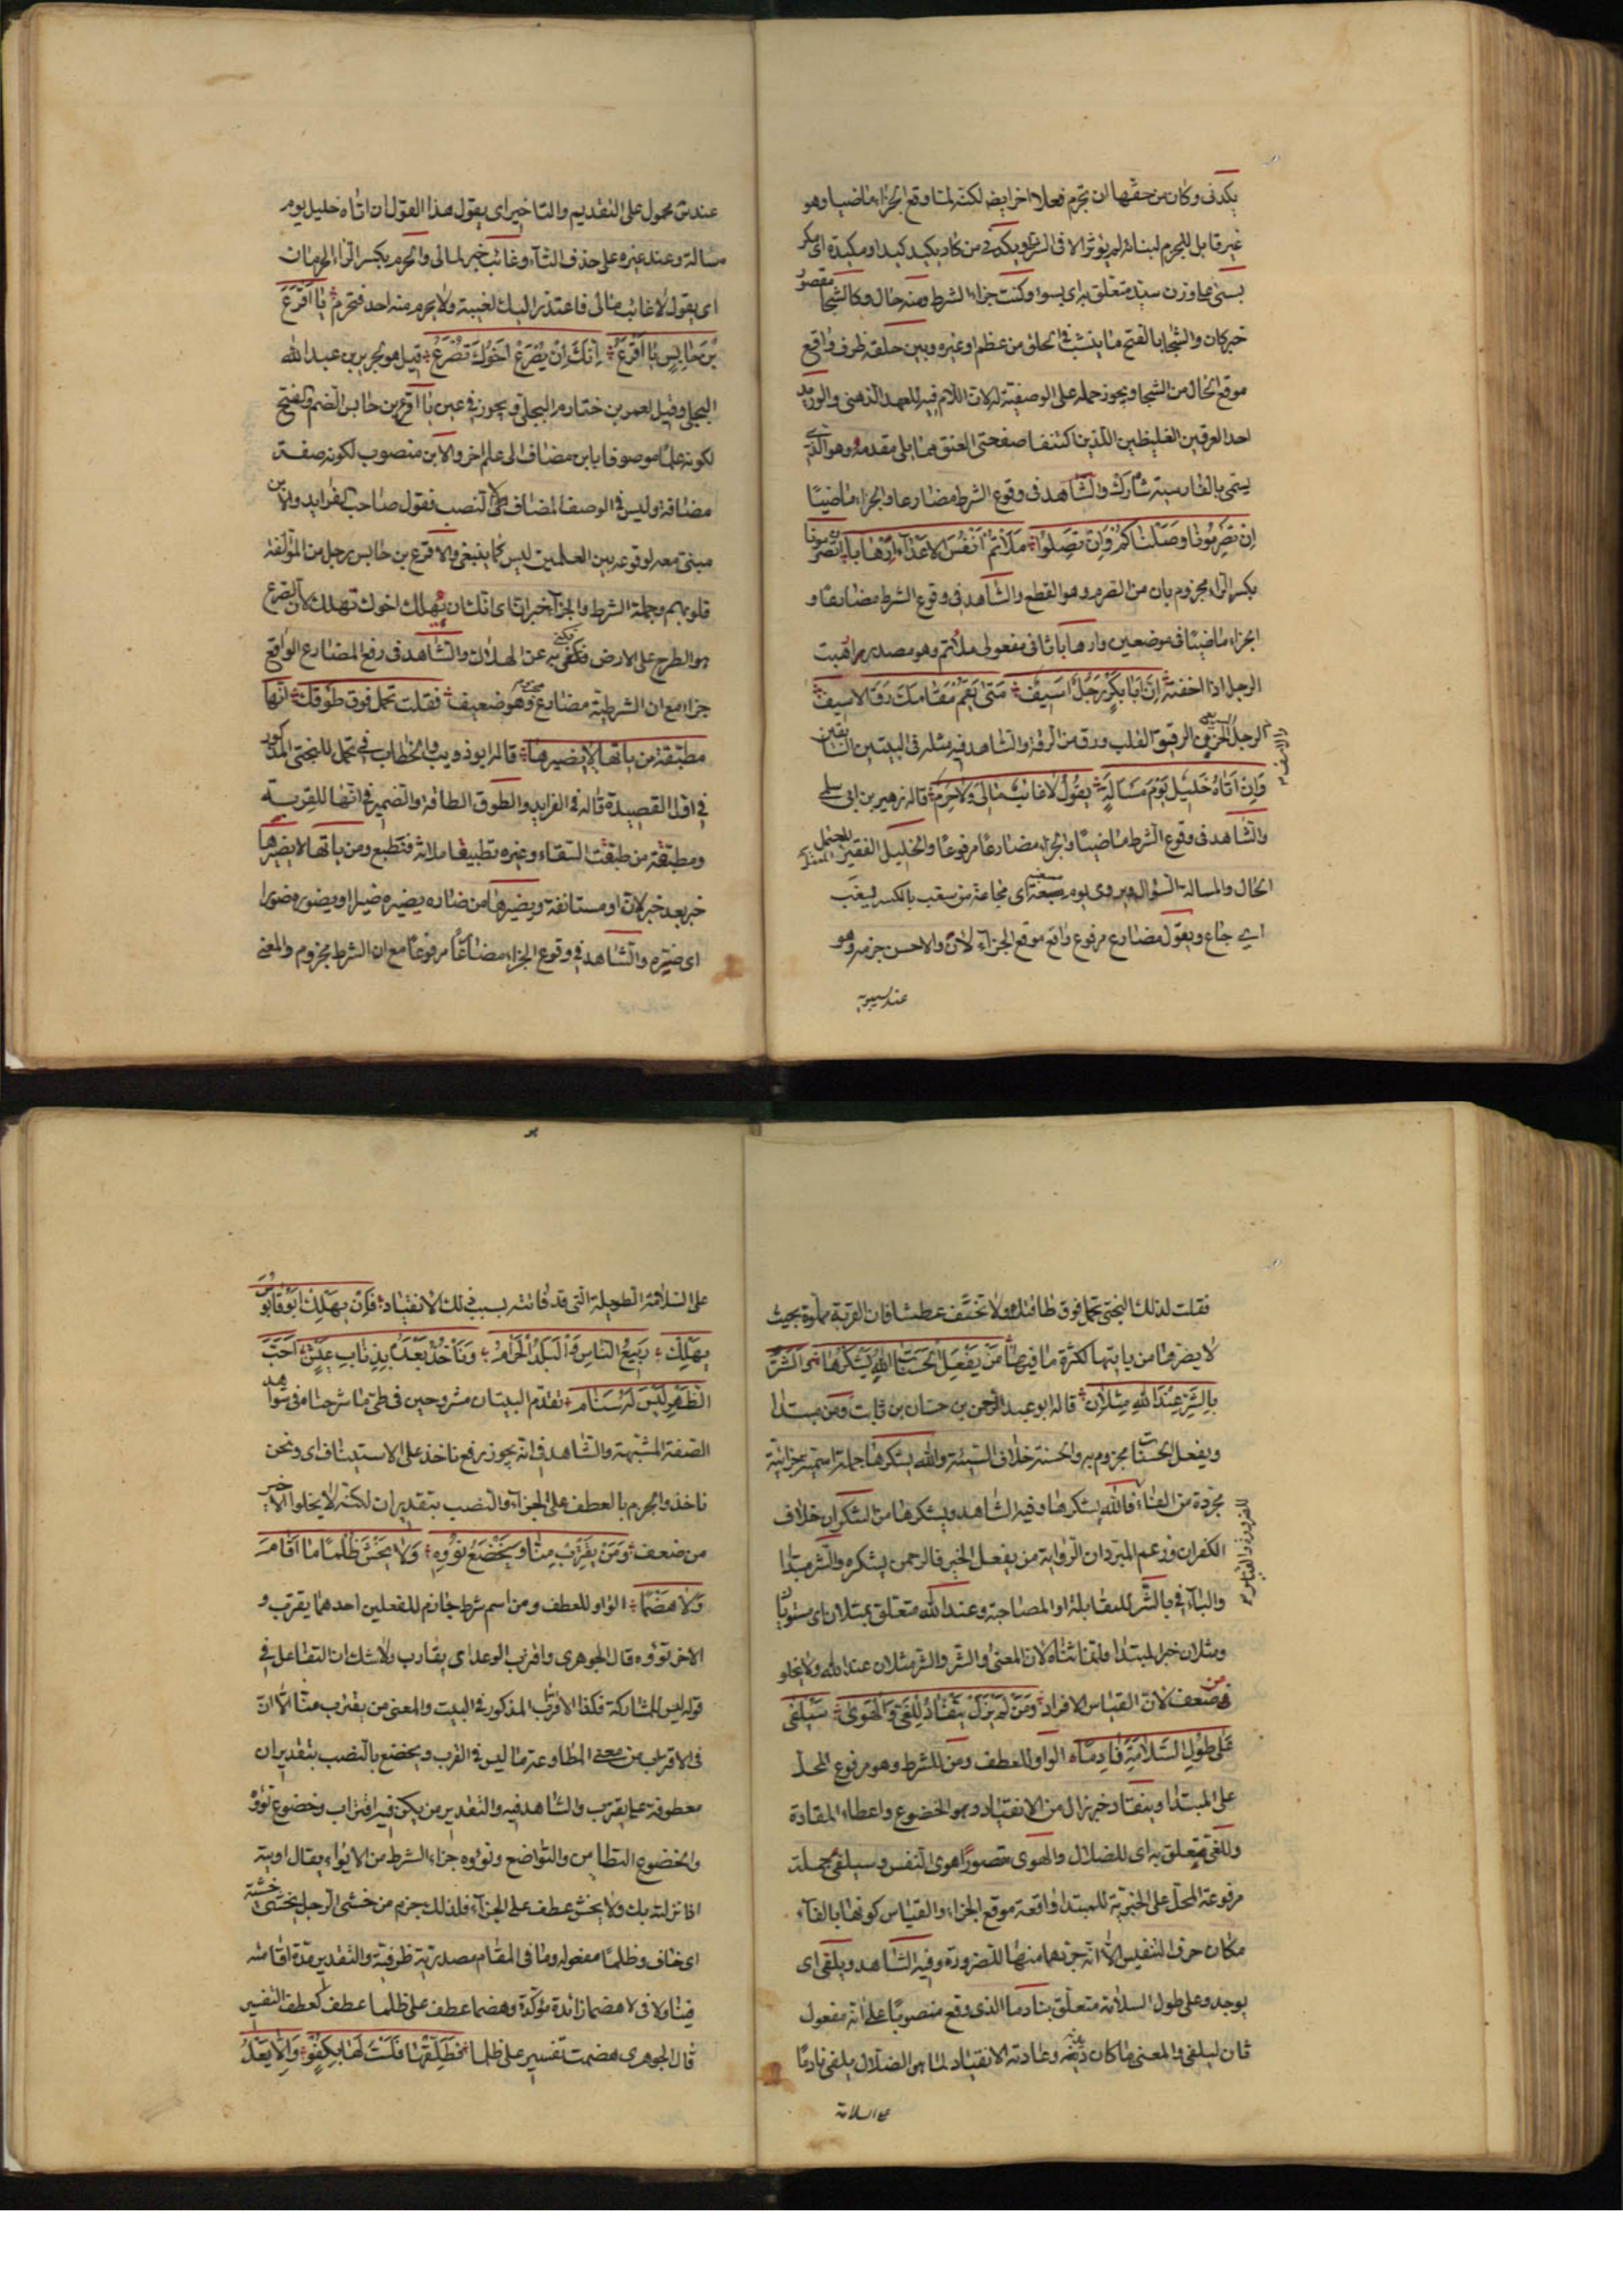 يكدنى وكان من حقها ان تجزم فعلا اخر ايضا لكنه لما وقع الجزاء ماضيا وهو
غير قابل للجزم لبنائه لم يؤثر الا فى الشرط ويكدنى من كاد يكيد كيدا ومكيدة اى مكر
بسيئ بما وزن سيد متعلق به اى بسوء وكنت جزاء الشرط ومنه حال وكالشجا مقصور
خبر كان والشجا بالفتح ما ينشب فى الحلق من عظم او غيره وبين حلقه ظرف واقع
موقع الحال من الشجا ويجوز حمله على الوصفية له لان اللام فيه للعهد الذهنى والوريد
احد العرقين الغليظين اللذين اكتنفا صفحتى العنق مما يلى مقدمه وهو الذى
يسمى بالفارسية شاه رك والشاهد فى وقوع الشرط مضارعا والجزاء ماضيا
ان تصرمونا وصلناكم وان تصلوا ملأتم انفس الاعداء ارهابا تصرمونا
بكسر الراء مجزوم بان من الصرم وهو القطع والشاهد فى وقوع الشرط مضارعا و
الجزاء ماضيا فى موضعين وارهابا ثانى مفعولى ملأتم وهو مصدر ارهبت
الرجل اذا اخفته ان ابا بكر رجل اسيف متى يقم مقامك رق الاسيف
الرجل الحزين الرقيق القلب ورق من الرقة والشاهد فيه مثله فى البيتين السابقين
وان اتاه خليل يوم مسالة يقول لا غائب مالى ولا حرم قاله زهير بن ابى سلمى
والشاهد فى وقوع الشرط ماضيا والجزاء مضارعا مرفوعا والخليل الفقير المختل
الحال والمسالة السؤال ويروى يوم مسغبة اى مجاعة من سغب بالكسر يسغب
اى جاع ويقول مضارع مرفوع واقع موقع الجزاء لان والاحسن جزمه وهو
عند سيبويه
عندنا محمول على التقديم والتاخير اى يقول هذا القول ان اتاه خليل يوم
مسالة وعند غيره على حذف الفاء وغائب خبر لمالى والحرم بكسر الراء الحرمان
اى يقول لا غائب مالى فاعتذر اليك لغيبته ولا يحرم منه احد فتحرم يا اقرع
بن حابس يا اقرع انك ان يصرع اخوك تصرع قيل هو لجرير بن عبد الله
البجلى وقيل لعمر بن خثارم البجلى ويجوز فى عين يا اقرع بن حابس الضم والفتح
لكونه علما موصوفا بابن مضاف الى علم اخر والابن منصوب لكونه صفة
مضافة وليس فى الوصف المضاف الا النصب فقول صاحب الفرايد والابن
مبنى معه لوقوعه بين العلمين ليس كما ينبغى والاقرع بن حابس رجل من المؤلفة
قلوبهم وجملة الشرط والجزاء خبر ان اى انك ان يهلك اخوك تهلك لان الصرع
هو الطرح على الارض فكنى به عن الهلاك والشاهد فى رفع المضارع الواقع
جزاء مع ان الشرطية مضارع مجزوم وهو ضعيف فقلت تحمل فوق طوقك انها
مطبقة من ياتها لا يضيرها قاله ابو ذويب والخطاب فى تحمل للبختى المذكور
فى اول القصيدة قاله فى الفرايد والطوق الطاقة والضمير فى انها للقرية
ومطبقة من طبقت السقاء وغيره تطبيقا ملاته فتطبع ومن ياتها لا يضيرها
خبر بعد خبر لان او مستانفة ويضيرها من ضاره يضيره ضيرا ويضوره ضورا
اى ضره والشاهد فى وقوع الجزاء مضارعا مرفوعا مع ان الشرط مجزوم والمعنى
فقلت لذلك البختى تحمل فوق طاقتك ولا تخف عطشا فان القربة مملوة بحيث
لا يضرها من ياتيها لكثرة ما فيها من يفعل الحسنات الله يشكرها والشر
بالشر عند الله مثلان قاله ابو عبد الرحمن بن حسان بن ثابت ومن مبتدا
ويفعل الحسنات مجزوم به والحسنة خلاف السيئة والله يشكرها جملة اسمية جزائية
مجردة من الفاء اى فالله يشكرها وفيه الشاهد ويشكرها من الشكران خلاف
الكفران وزعم المبرد ان الرواية من يفعل الخير فالرحمن يشكره والشر مبتدا
والباء فى بالشر للمقابلة او المصاحبة وعند الله متعلق بمثلان اى مستويان
ومثلان خبر المبتدا وانما ثناه لان المعنى والشر والشر مثلان عند الله ولا يخلو
من ضعف لان القياس الافراد ومن لم يزل ينقاد للغى والهوى سيلفى
على طول السلامة نادما الواو للعطف ومن للشرط وهو مرفوع المحل
على المبتدا وينقاد خبر يزال من الانقياد وهو الخضوع واعطاء المقادة
وللغى متعلق به اى للضلال والهوى مقصورا هوى النفس وسيلفى جملة
مرفوعة المحل على الخبرية للمبتدا واقعة موقع الجزاء والقياس كونها بالفاء
مكان حرف التنفيس الا انه جردها منها للضرورة وفيه الشاهد ويلفى اى
يوجد وعلى طول السلامة متعلق بنادما الذى وقع منصوبا على انه مفعول
ثان ليلفى والمعنى ما كان دينه وعادته الانقياد لما هو الضلال يلفى نادما
على السلامة
على السلامة الطويلة التى قد فاتته بسبب ذلك الانقياد فان يهلك ابو قابوس
يهلك ربيع الناس والبلد الحرام وناخذ بعده بذناب عيش اجب
الظهر ليس له سنام تقدم البيتان مشروحين فى طى ما شرحنا فى شواهد
الصفة المشبهة والشاهد فى انه يجوز رفع ناخذ على الاستيناف اى ونحن
ناخذ والجزم بالعطف على الجزاء والنصب بتقدير ان لكنه لا يخلو الاخير
من ضعف ومن يقترب منا ويخضع نؤوه ولا يخش ظلما ما اقام
ولا هضما الواو للعطف ومن اسم شرط جازم للفعلين احدهما يقترب و
الاخر نؤوه قال الجوهرى واقترب الوعد اى يقارب ولا شك ان التفاعل فى
قوله ليس للمشاركة فكذا الاقتراب المذكور فى البيت والمعنى من يقترب منا الا ان
فى الاقتراب من معنى المطاوعة ما ليس فى القرب ويخضع بالنصب بتقدير ان
معطوفة على يقترب والشاهد فيه والتقدير من يكن فيه اقتراب وخضوع نؤوه
والخضوع التطامن والتواضع ونؤوه جزاء الشرط من الايواء يقال اويته
اذا نزلته بك ولا يخش عطف على الجزاء فلذلك جزم من خشى الرجل يخشى خشية
اى خاف وظلما مفعوله وما فى ما اقام مصدرية ظرفية والتقدير مدة اقامته
فينا ولا فى لا هضما زائدة مؤكدة وهضما عطف على ظلما عطف كعطف التفسير
قال الجوهرى هضمت تفسير على ظلما فطلقها فلست لها بكفو والا يعل